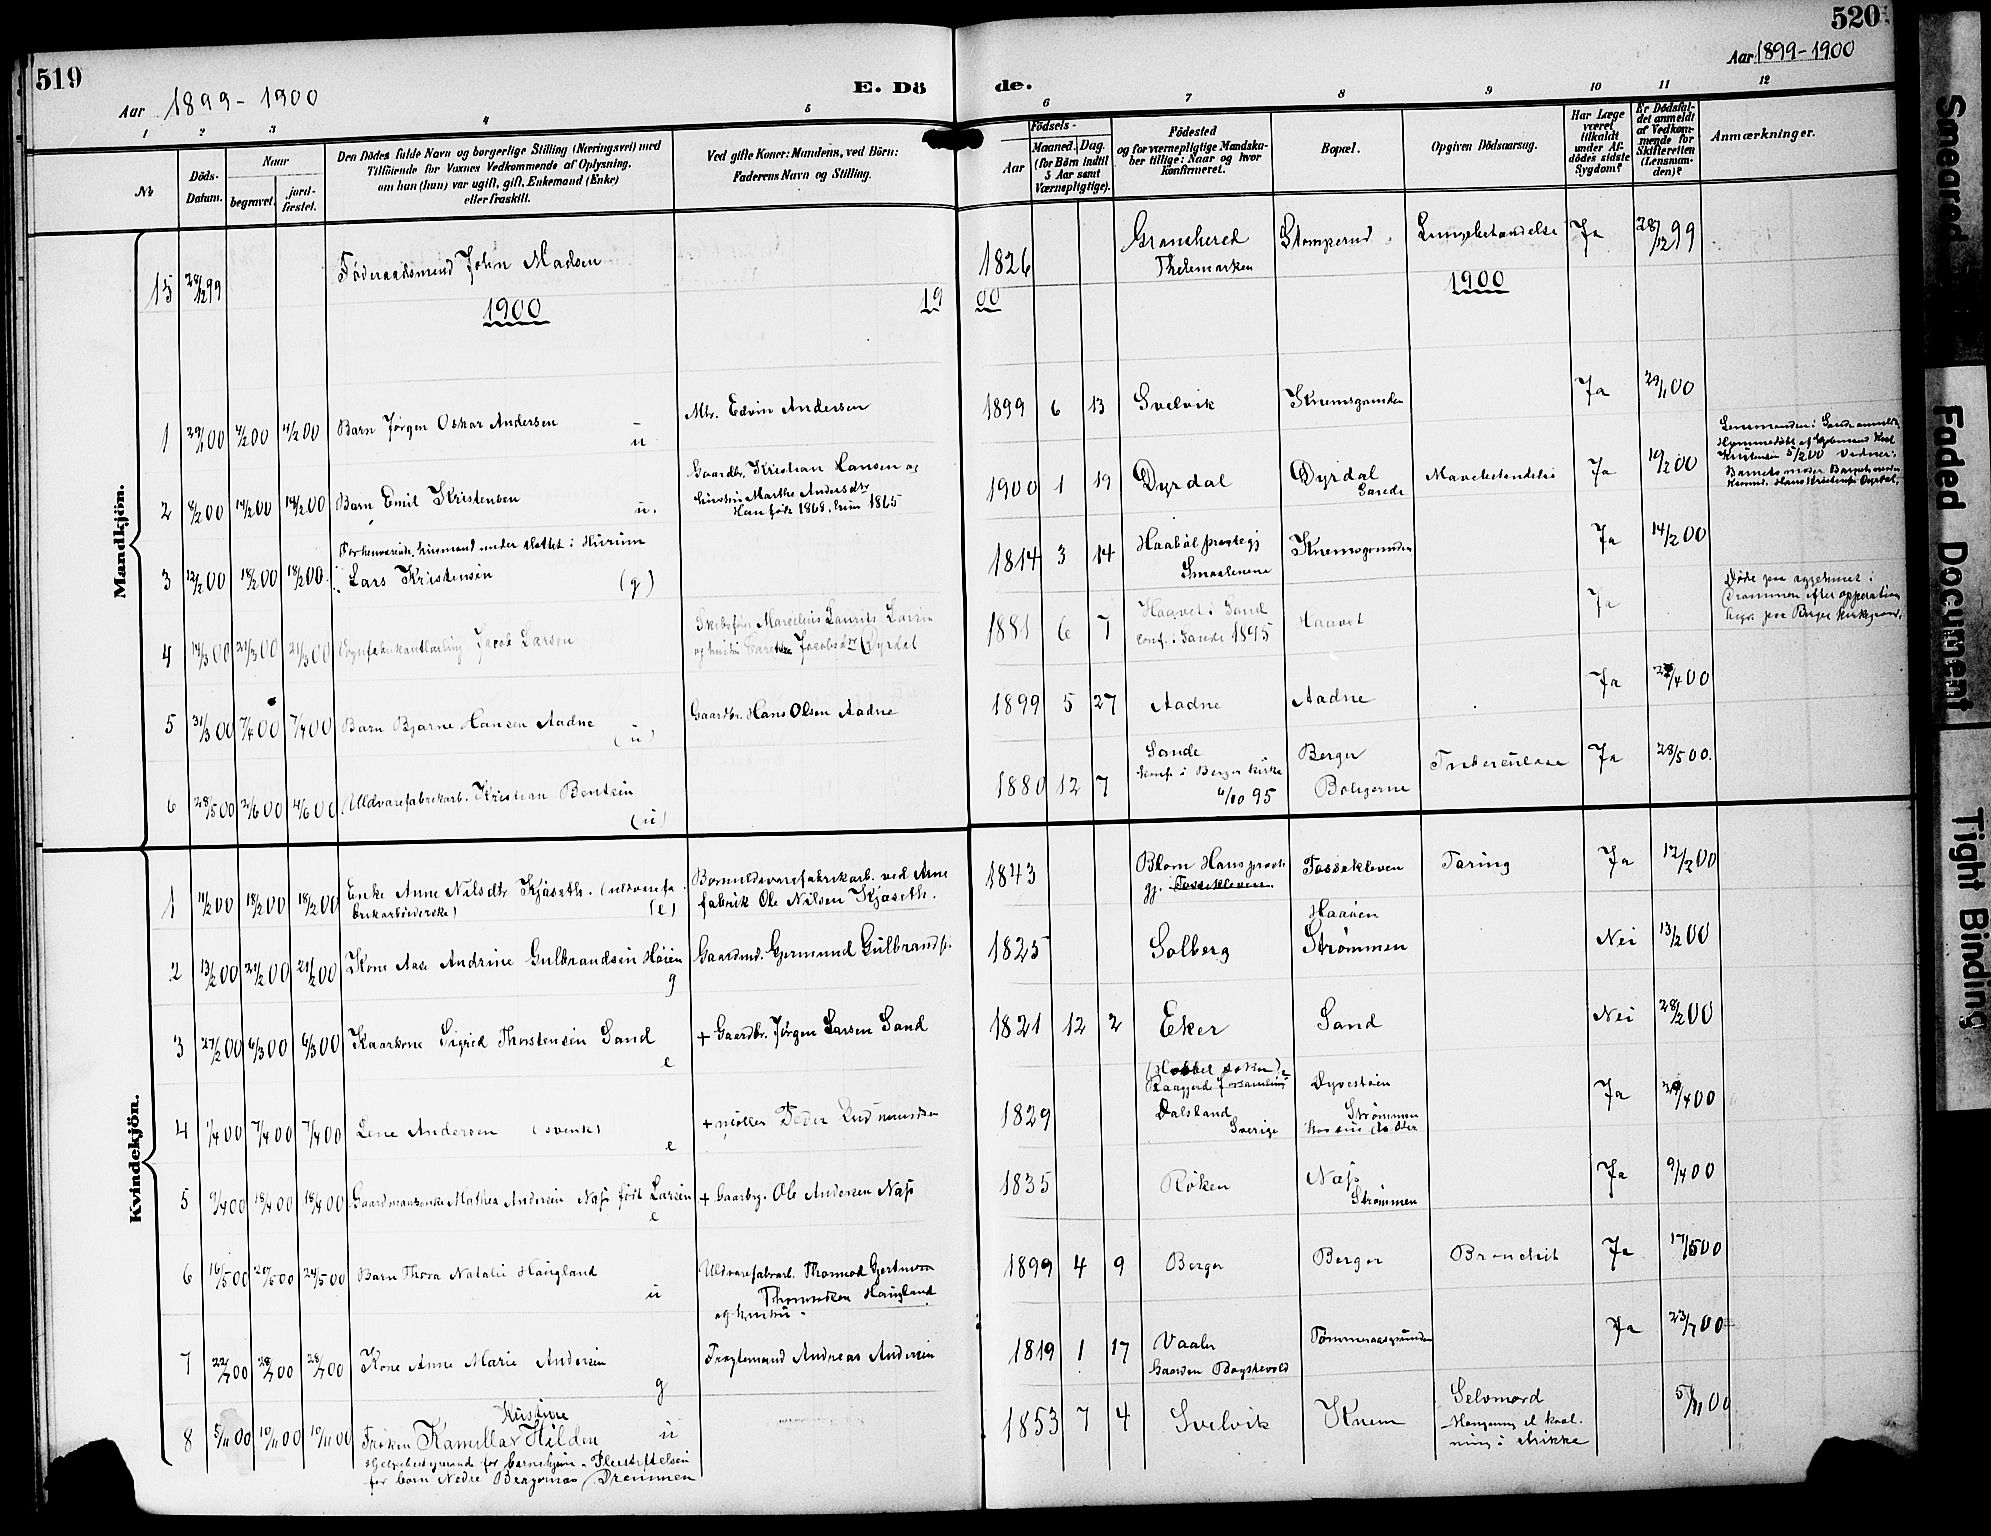 519
Aar 1899-1900
E. Dö
de.
520
Aar 1899-1900
1 2 3 4 5 6 7 8 9 10 11 12
No
Döds-Datum.
Naar
begravet.
jord-fæstet.
Den Dödes fulde Navn og borgerlige Stilling (Næringsvei) med
Tilföiende for Voxnes Vedkommende af Oplysning,
om han (hun) var ugift, gift, Enkemand (Enke)
eller fraskilt.
Ved gifte Koner: Mandens, ved Börn:
Faderens Navn og Stilling.
Födsels-
Aar
Maaned. Dag.
(for Börn indtil
5 Aar samt
Værnepligtige).
Födested
og for værnepligtige Mandska-
ber tillige: Naar og hvor
konfirmeret.
Bopæl.
Opgiven Dödsaarsag.
Har Læge
været
tilkaldt
under Af-
dödes sidste
Sygdom?
Er Dödsfal-
det anmeldt
af Vedkom-
mende for
Skifteretten
(Lensman-
den)?
Anmærkninger.
Mandkjön.
15 28/12 99 Föderaadsmand John Madsen 1826 Gransherad
Thelemarken Stomperud Lungebetændelse Ja 28/12 99
1900 19 00 1900
1 29/1 00 4/2 00 4/2 00 Barn Jørgen Oskar Andersen u Mtr. Edvin Andersen 1899 6 13 Svelvik Knemsgrunden Ja 29/1 00
2 8/2 00 14/2 00 14/2 00 Barn Emil Kristensen u. Gaardbr. Kristian Hansen og
hustru Marthe Andersdtr
Han født 1868, hun 1865 1900 1 19 Dyrdal Dyrdal
Sande Mavebetændelse Ja 10/2 00
3 12/2 00 18/2 00 18/2 00 Forhenværende husmand under slottet i Hurum
Lars Kristensen (g) 1814 3 14 Haabøl prestegj
Smaalenene Knemsgrunden Ja 14/2 00
4 14/3 00 21/3 00 21/3 00 Jacob Larsen Skibsfører Marcelius Laurits Larsen
og hustru Jacobsdtr (Dyrdal 1881 6 7 Haavet i Sand
conf. i Sande 1895 Haavet Ja Døde paa sygehuset i
Drammen efter opperation
begr. paa Berger kirkegaard.
5 31/3 00 7/4 00 7/4 00 Barn Bjarne Hansen Aadne (u) Gaardbr. Hans Olsen Aadne 1899 5 27 Aadne Aadne Ja /4 00
6 28/5 00 4/6 00 Uldvarefabrikarb. Kristian Bentsen (u) 1880 12 7 Sande
konf. i Berger kirke
95 Berger
Boligerne Tuberculose Ja 28/5 00.
Kvindekjön.
1 11/2 00 18/2 00 18/2 00 Enke Anne Nilsdtr Kjøseth. (uldvarefa
brikarbeiderske) (e) Bomuldsvarefabrikarb. ved Arne
fabrik Ole Nilsen Kjøseth. 1843 Hans prest
gj. Fossekleven Fossekleven Tæring Ja 12/2 00
2 13/2 00 21/2 00 21/2 00 Kone Aase Andrine Gulbrandsen Høien g Gaardmd. Gjermund Gulbrands. 1825 Solberg Haaøen
Strømmen Nei 13/2 00
3 27/2 00 6/3 00 6/3 00 Kaarkone Sigrid Thorstensen Sand e + Gaardbr. Jørgen Larsen Sand 1821 12 2 Eker Sand Nei 28/2 00
4 1/4 00 7/4 00 7/4 00 Lene Andersen (svensk) e + møller Peder 1829
Dalsland
Sverige Dyvestøen
Strømmen
hos sin Ja /4 00
5 9/4 00 18/4 00 18/4 00 Gaardmandsenke Mathea Andersen Næss født Larsen e + Gaardbrg. Ole Andersen Næss 1835 Røken Næss
Strømmen Ja 9/4 00
6 16/5 00 24/5 00 24/5 00 Barn Thora Natalie Haugland u Uldvarefabrarb. Thormod Gjertmson
Thormodsen Haugland
og hustru 1899 4 9 Berger Berger Bronchit Ja 17/5 00
7 22/7 00 28/7 00 28/7 00 Kone Anne Marie Andersen g Fragtemand Andreas Andersen 1819 1 17 Vaaler
Gaarden Tømmeraasgrunden Ja 23/7 00
8 5/11 00 10/11 00 10/11 00 Kristine
Frøken Kamilla Hilden u
for børn Nedre Bragernæs, Drammen 1853 7 4 Svelvik Knem Selvmord
Hængning el. kvæl-
ning i 5/11 00
Smeared
Faded Document
Tight Binding